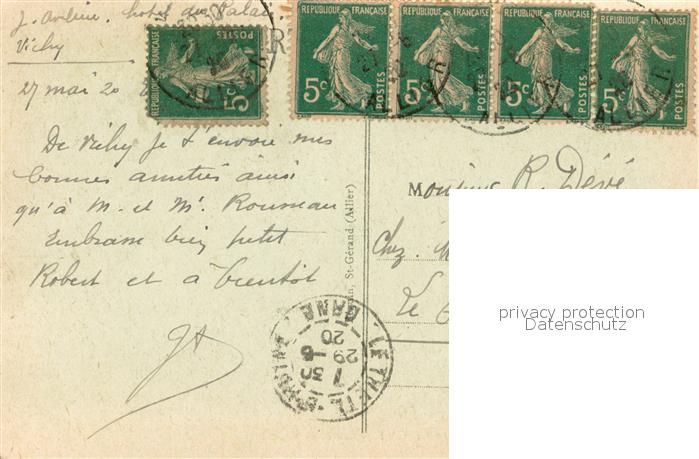 hôtel du Palais
Vichy
27 mai 20
RÉPUBLIQUE FRANÇAISE
5c
POSTES
RÉPUBLIQUE FRANÇAISE
5c
POSTES
RÉPUBLIQUE FRANÇAISE
5c
POSTES
RÉPUBLIQUE FRANÇAISE
5c
POSTES
RÉPUBLIQUE FRANÇAISE
5c
POSTES
ALLIER
De Vichy je t'envoie mes
bonnes amitiés ainsi
qu'à M. et Me. Rousseau
Embrasse bien petit
Robert et à bientôt
St-Gérand (Allier)
Monsieur R. Dévé
Chez
Le
LE THEIL
ORNE
7 30
29 -6
20
privacy protection
Datenschutz